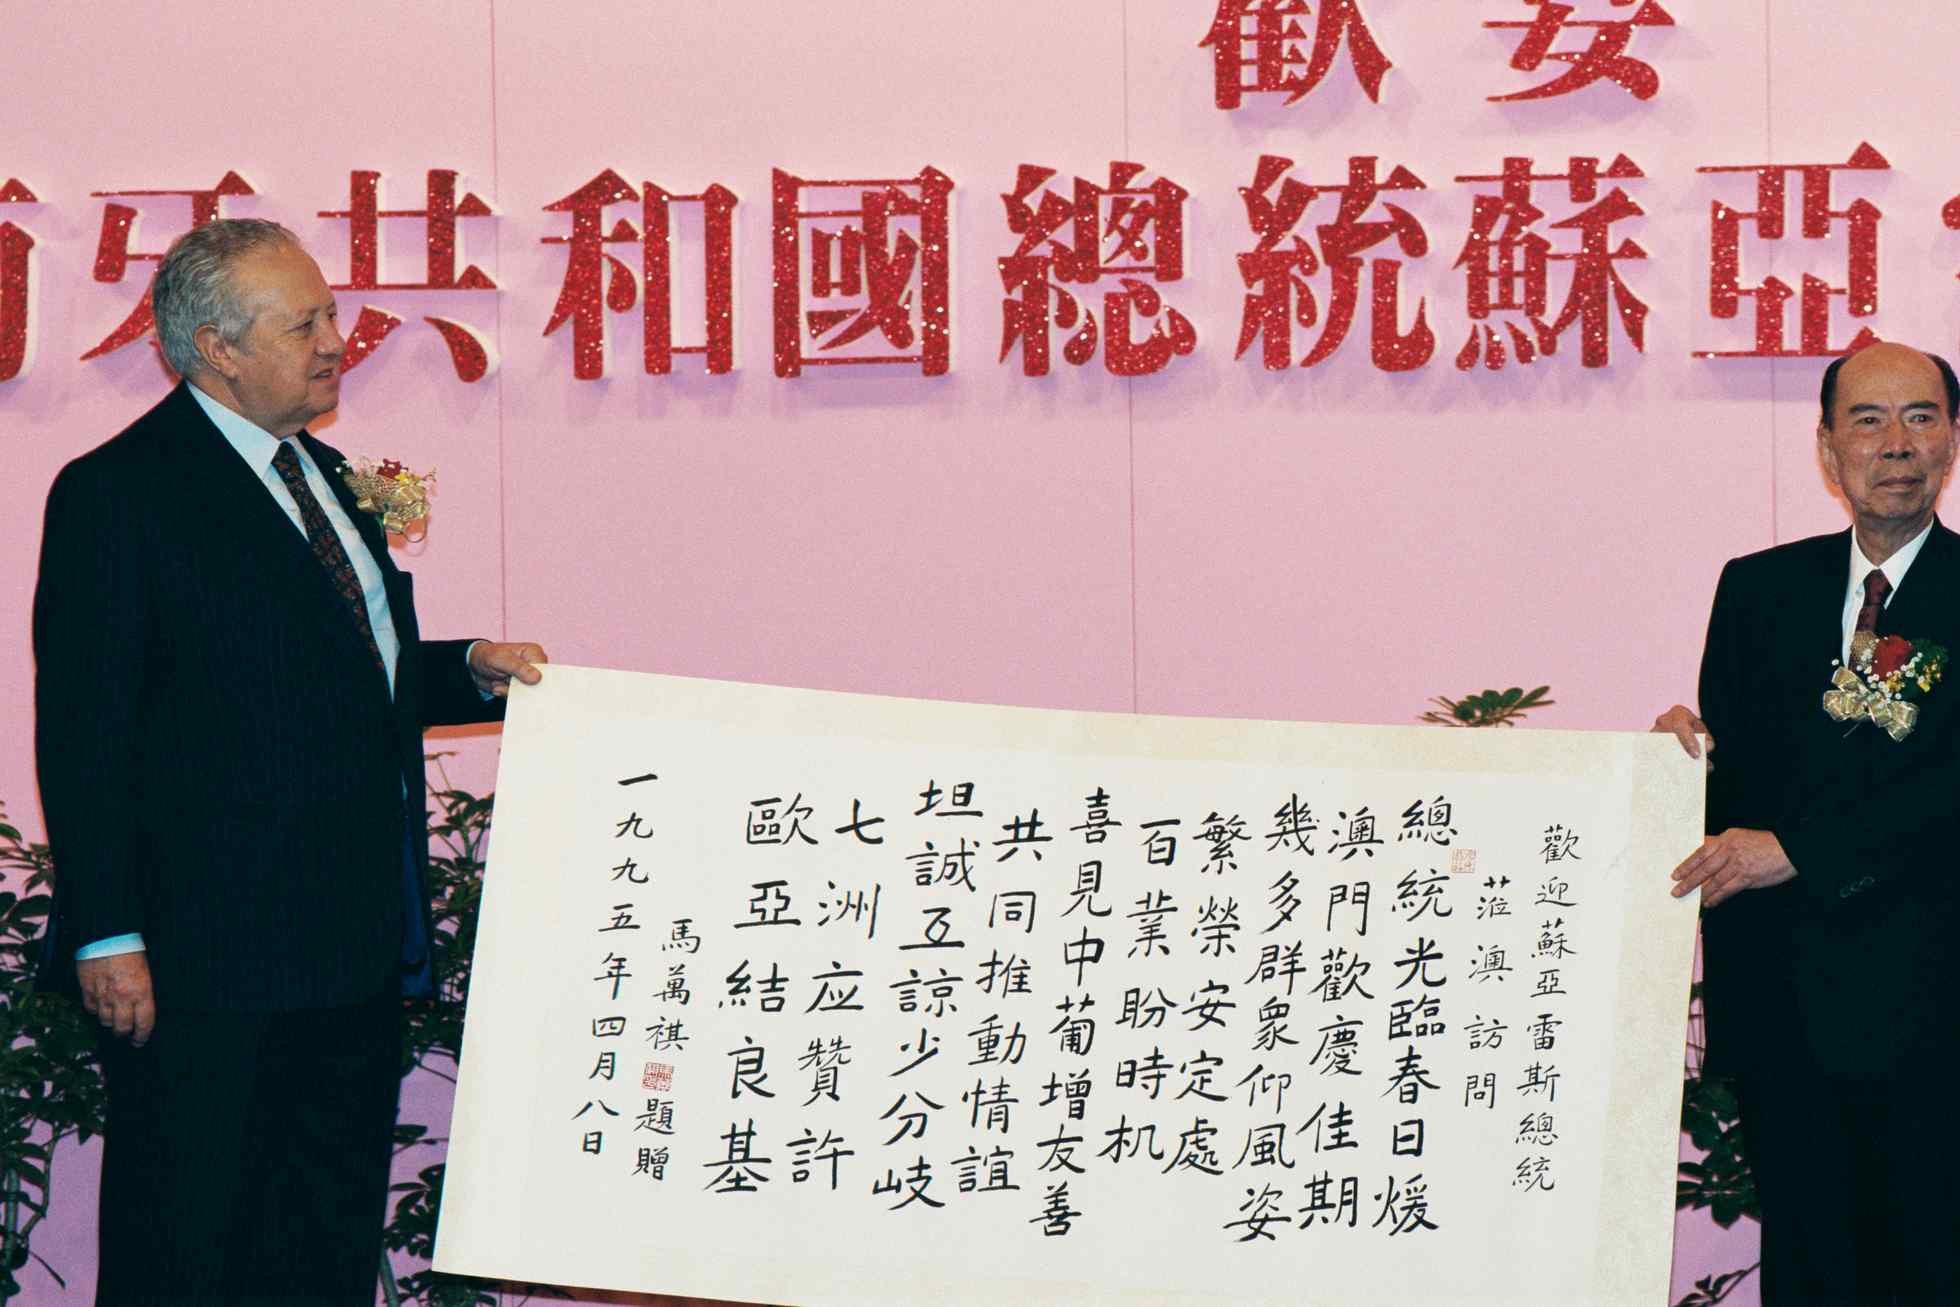 歡宴
牙共和國總統蘇亞
歡迎蘇亞雷斯總統
莅澳訪問
總統光臨春日煖
澳門歡慶佳期
幾多群眾仰風姿
繁榮安定處
百業盼時机
喜見中葡增友善
共同推動情誼
坦誠互諒少分岐
七洲应贊許
歐亞結良基
馬萬祺題贈
一九九五年四月八日